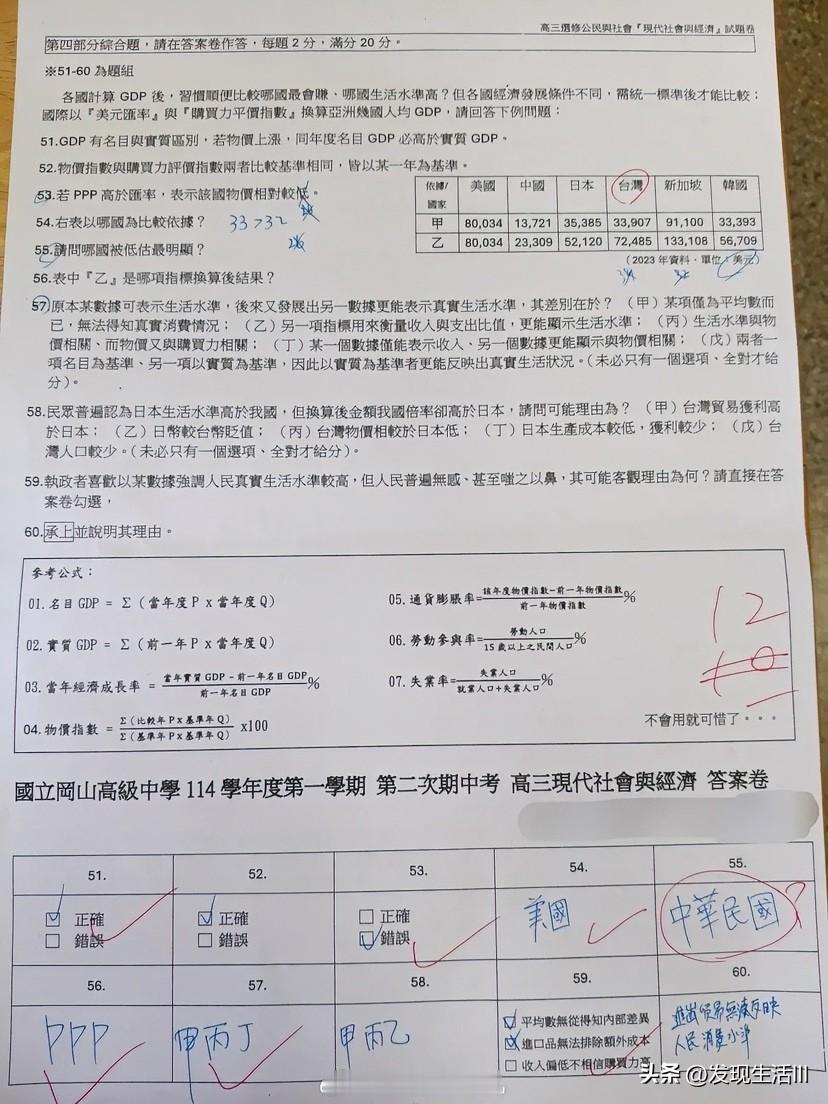 高三選修公民與社會『現代社會與經濟』試題卷
第四部分綜合題，請在答案卷作答，每題 2 分，滿分 20 分。
※51-60 為題組
各國計算 GDP 後，習慣順便比較哪國最會賺、哪國生活水準高？但各國經濟發展條件不同，需統一標準後才能比較；
國際以『美元匯率』與『購買力平價指數』換算亞洲幾國人均 GDP，請回答下例問題：
51.GDP 有名目與實質區別，若物價上漲，同年度名目 GDP 必高於實質 GDP。
52.物價指數與購買力評價指數兩者比較基準相同，皆以某一年為基準。
53.若 PPP 高於匯率，表示該國物價相對較低。
54.右表以哪國為比較依據？ 33>32
55.請問哪國被低估最明顯？
56.表中『乙』是哪項指標換算後結果？
依據/國家 美國 中國 日本 台灣 新加坡 韓國
甲 80,034 13,721 35,385 33,907 91,100 33,393
乙 80,034 23,309 52,120 72,485 133,108 56,709
（2023 年資料，單位：美元）
57.原本某數據可表示生活水準，後來又發展出另一數據更能表示真實生活水準，其差別在於？（甲）某項僅為平均數而
已，無法得知真實消費情況；（乙）另一項指標用來衡量收入與支出比值，更能顯示生活水準；（丙）生活水準與物
價相關、而物價又與購買力相關；（丁）某一個數據僅能表示收入、另一個數據更能顯示與物價相關；（戊）兩者一
項名目為基準、另一項以實質為基準，因此以實質為基準者更能反映出真實生活狀況。（未必只有一個選項、全對才給
分）。
58.民眾普遍認為日本生活水準高於我國，但換算後金額我國倍率卻高於日本，請問可能理由為？（甲）台灣貿易獲利高
於日本；（乙）日幣較台幣貶值；（丙）台灣物價相較於日本低；（丁）日本生產成本較低，獲利較少；（戊）台
灣人口較少。（未必只有一個選項、全對才給分）。
59.執政者喜歡以某數據強調人民真實生活水準較高，但人民普遍無感、甚至嗤之以鼻，其可能客觀理由為何？請直接在答
案卷勾選，
60.承上並說明其理由。
參考公式：
01.名目 GDP = Σ（當年度 P x 當年度 Q）
02.實質 GDP = Σ（前一年 P x 當年度 Q）
03.當年經濟成長率 = 當年實質 GDP－前一年名目 GDP/前一年名目 GDP%
04.物價指數 = Σ（比較年 P x 基準年 Q）/Σ（基準年 P x 基準年 Q） x100
05.通貨膨脹率=該年度物價指數－前一年物價指數/前一年物價指數%
06.勞動參與率=勞動人口/15 歲以上之民間人口%
07.失業率=失業人口/就業人口+失業人口%
12
不會用就可惜了。。。
國立岡山高級中學 114 學年度第一學期 第二次期中考 高三現代社會與經濟 答案卷
51. 52. 53. 54. 55.
正確 正確 正確 美國 中華民國 ?
錯誤 錯誤 錯誤
56. 57. 58. 59. 60.
PPP 甲丙丁 甲丙乙
平均數無從得知內部差異
進口品無法排除額外成本
收入偏低不相信購買力高
進出貿易無法反映
人民消費水準
头条 @发现生活III